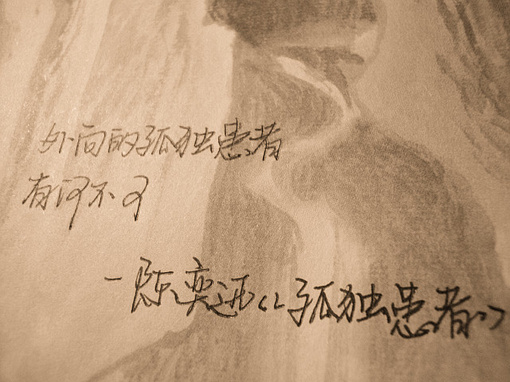 外向的孤独患者
有何不可
—陈奕迅《孤独患者》